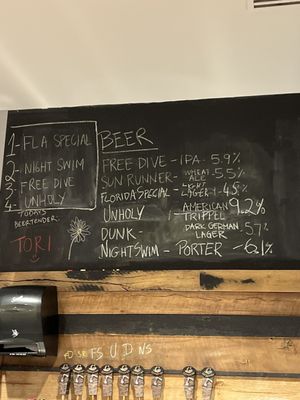 1- FLA SPECIAL
2- NIGHT SWIM
3- FREE DIVE
4- UNHOLY
TODAYS
BEERTENDER:
TORI
BEER
FREE DIVE - IPA - 5.9%
SUN RUNNER - WHEAT ALE - 5.5%
FLORIDA SPECIAL - LIGHT LAGER - 4.8%
UNHOLY - AMERICAN TRIPPEL 9.2%
DUNK - DARK GERMAN LAGER - .57%
NIGHT SWIM - PORTER - 6.1%
FS U D NS